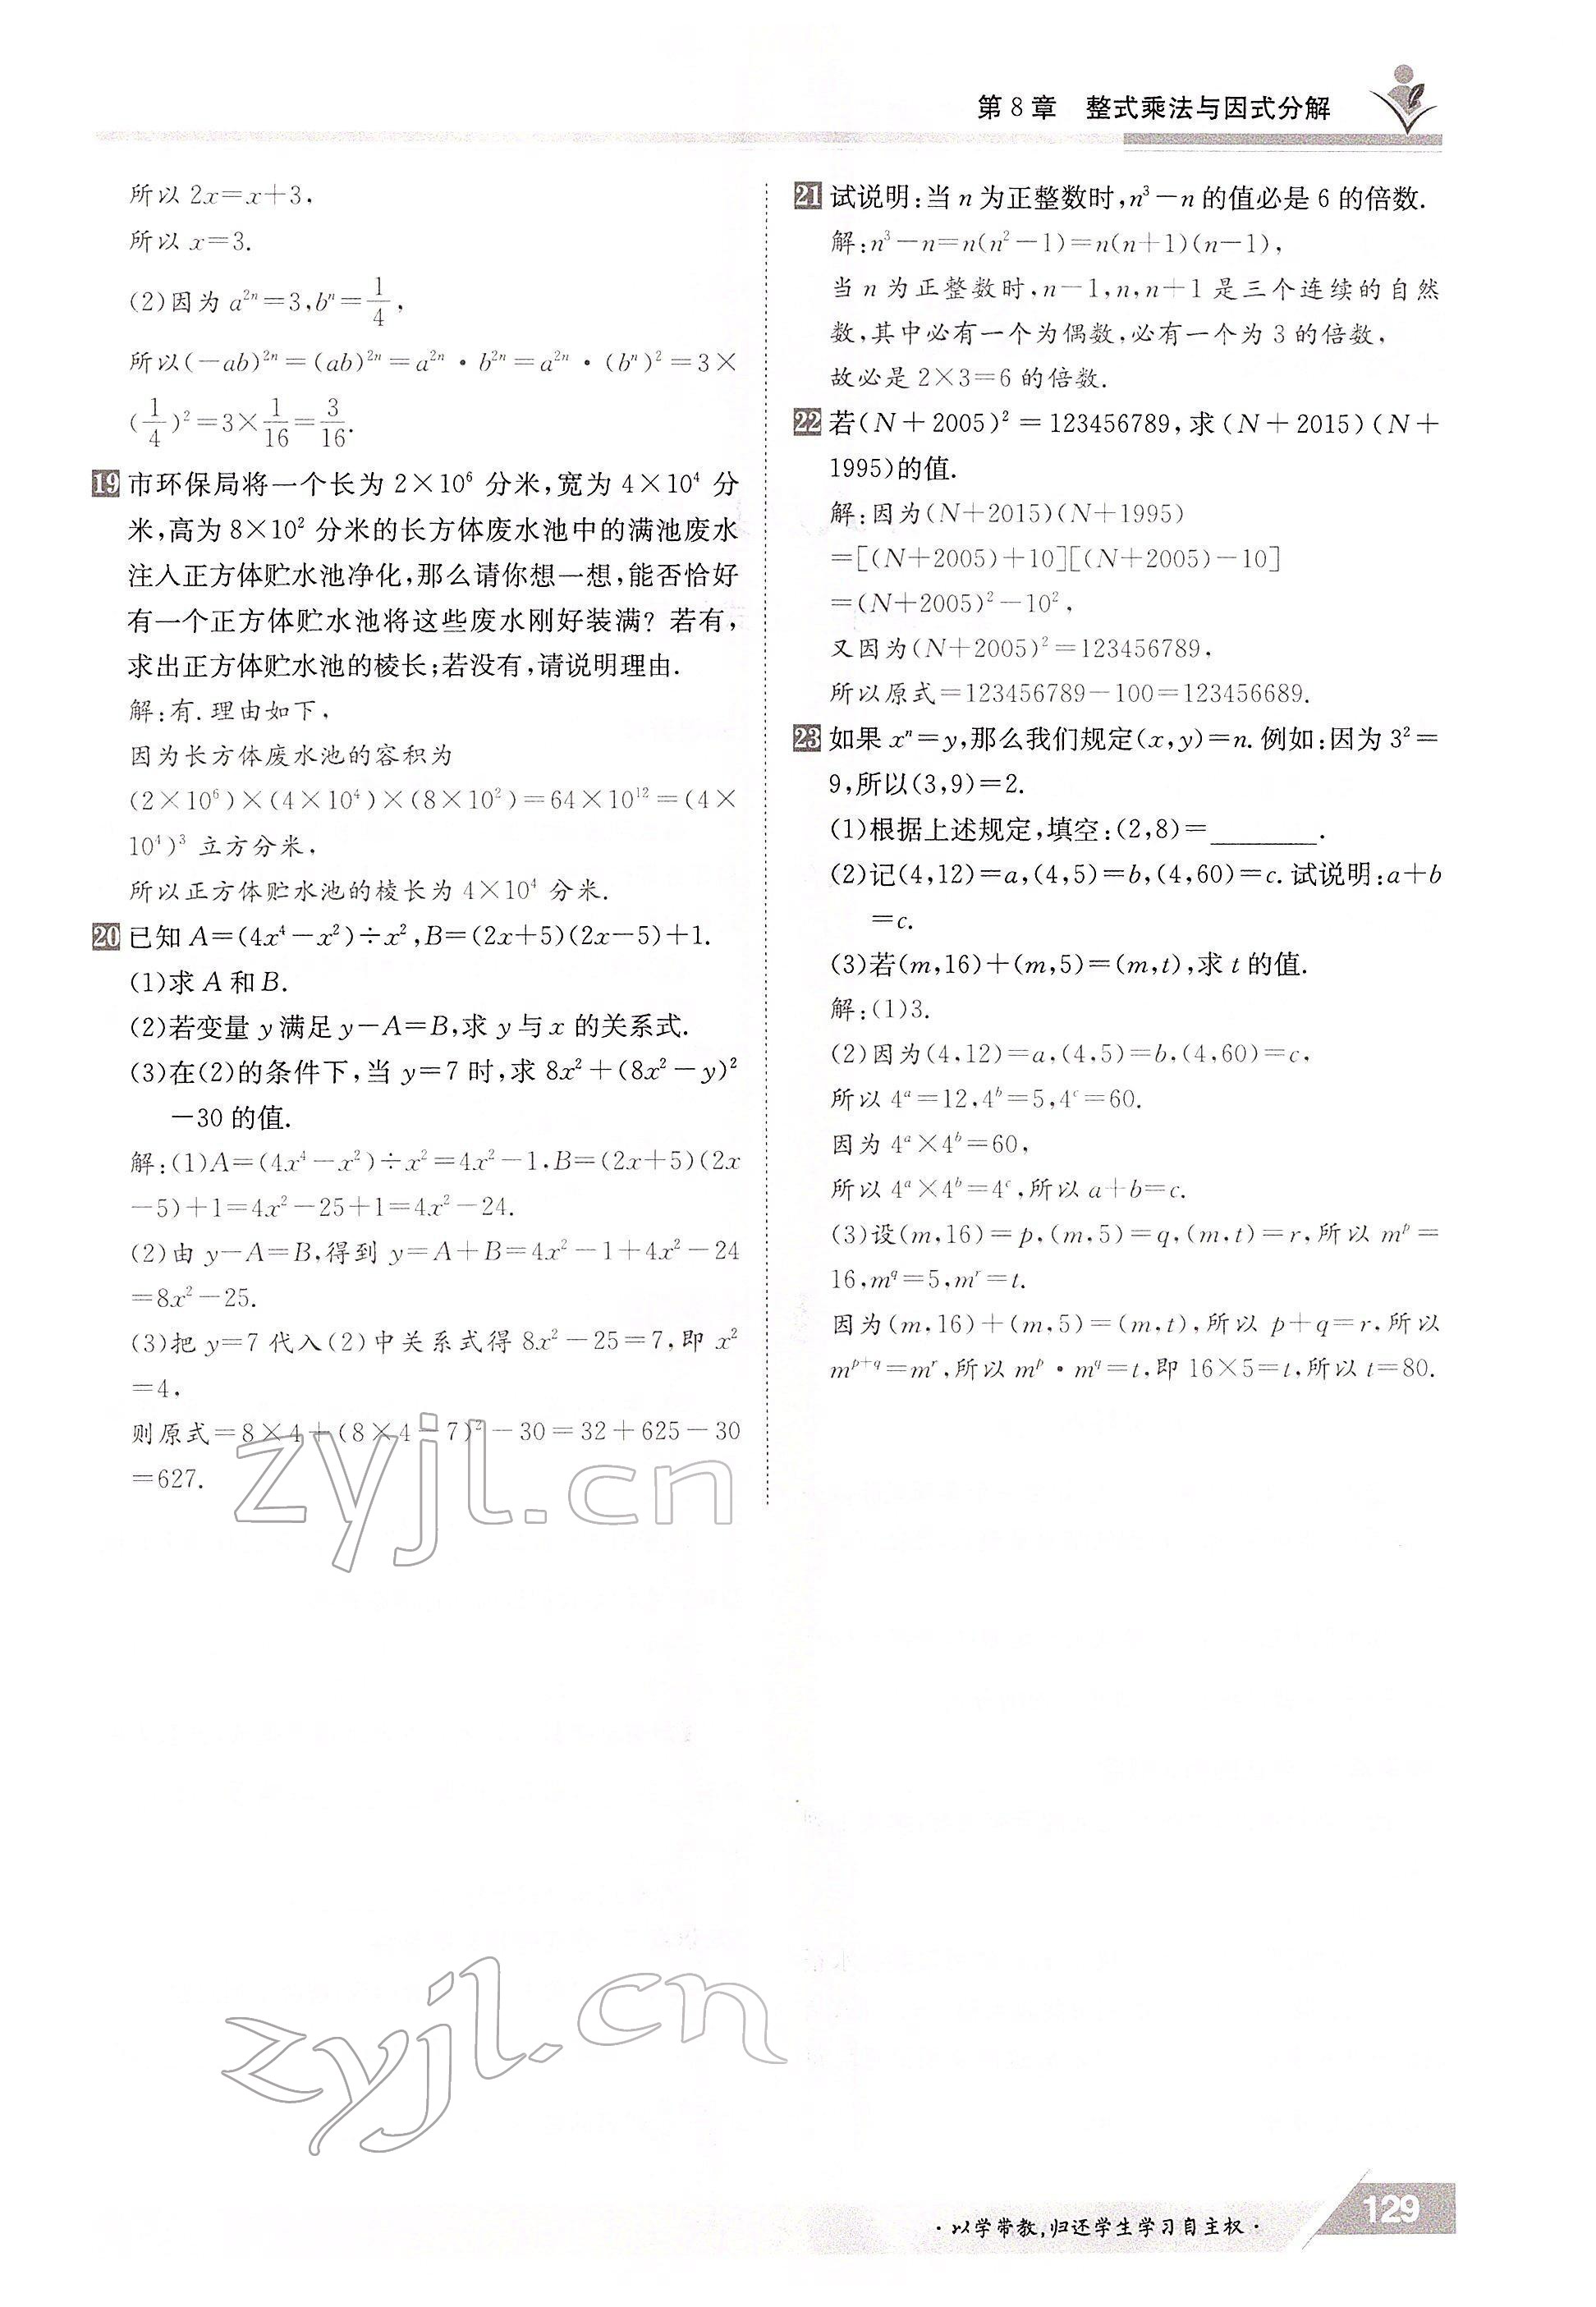 第8章 整式乘法与因式分解
所以 2x=x+3,
所以 x=3.
(2)因为 a²ⁿ=3,bⁿ=1/4,
所以(-ab)²ⁿ=(ab)²ⁿ=a²ⁿ·b²ⁿ=a²ⁿ·(bⁿ)²=3×
(1/4)²=3×1/16=3/16.
19 市环保局将一个长为 2×10⁶ 分米,宽为 4×10⁴ 分
米,高为 8×10² 分米的长方体废水池中的满池废水
注入正方体贮水池净化,那么请你想一想,能否恰好
有一个正方体贮水池将这些废水刚好装满? 若有,
求出正方体贮水池的棱长;若没有,请说明理由.
解:有.理由如下,
因为长方体废水池的容积为
(2×10⁶)×(4×10⁴)×(8×10²)=64×10¹²=(4×
10⁴)³ 立方分米,
所以正方体贮水池的棱长为 4×10⁴ 分米.
20 已知 A=(4x⁴-x²)÷x²,B=(2x+5)(2x-5)+1.
(1)求 A 和 B.
(2)若变量 y 满足 y-A=B,求 y 与 x 的关系式.
(3)在(2)的条件下,当 y=7 时,求 8x²+(8x²-y)²
-30 的值.
解:(1)A=(4x⁴-x²)÷x²=4x²-1,B=(2x+5)(2x
-5)+1=4x²-25+1=4x²-24.
(2)由 y-A=B,得到 y=A+B=4x²-1+4x²-24
=8x²-25.
(3)把 y=7 代入(2)中关系式得 8x²-25=7,即 x²
=4,
则原式=8×4+(8×4-7)²-30=32+625-30
=627.
21 试说明:当 n 为正整数时,n³-n 的值必是 6 的倍数.
解:n³-n=n(n²-1)=n(n+1)(n-1),
当 n 为正整数时,n-1,n,n+1 是三个连续的自然
数,其中必有一个为偶数,必有一个为 3 的倍数,
故必是 2×3=6 的倍数.
22 若(N+2005)²=123456789,求(N+2015)(N+
1995)的值.
解:因为(N+2015)(N+1995)
=[(N+2005)+10][(N+2005)-10]
=(N+2005)²-10²,
又因为(N+2005)²=123456789,
所以原式=123456789-100=123456689.
23 如果 xⁿ=y,那么我们规定(x,y)=n. 例如:因为 3²=
9,所以(3,9)=2.
(1)根据上述规定,填空:(2,8)=________.
(2)记(4,12)=a,(4,5)=b,(4,60)=c. 试说明:a+b
=c.
(3)若(m,16)+(m,5)=(m,t),求 t 的值.
解:(1)3.
(2)因为(4,12)=a,(4,5)=b,(4,60)=c,
所以 4ᵃ=12,4ᵇ=5,4ᶜ=60.
因为 4ᵃ×4ᵇ=60,
所以 4ᵃ×4ᵇ=4ᶜ,所以 a+b=c.
(3)设(m,16)=p,(m,5)=q,(m,t)=r,所以 mᵖ=
16,m^q=5,mʳ=t.
因为(m,16)+(m,5)=(m,t),所以 p+q=r,所以
m^(p+q)=mʳ,所以 mᵖ·m^q=t,即 16×5=t,所以 t=80.
zyjl.cn
zyjl.cn
·以学带教,归还学生学习自主权·
129